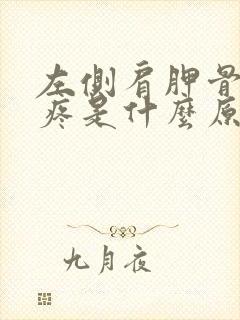 左側肩胛骨
疼是什麼原
九月夜